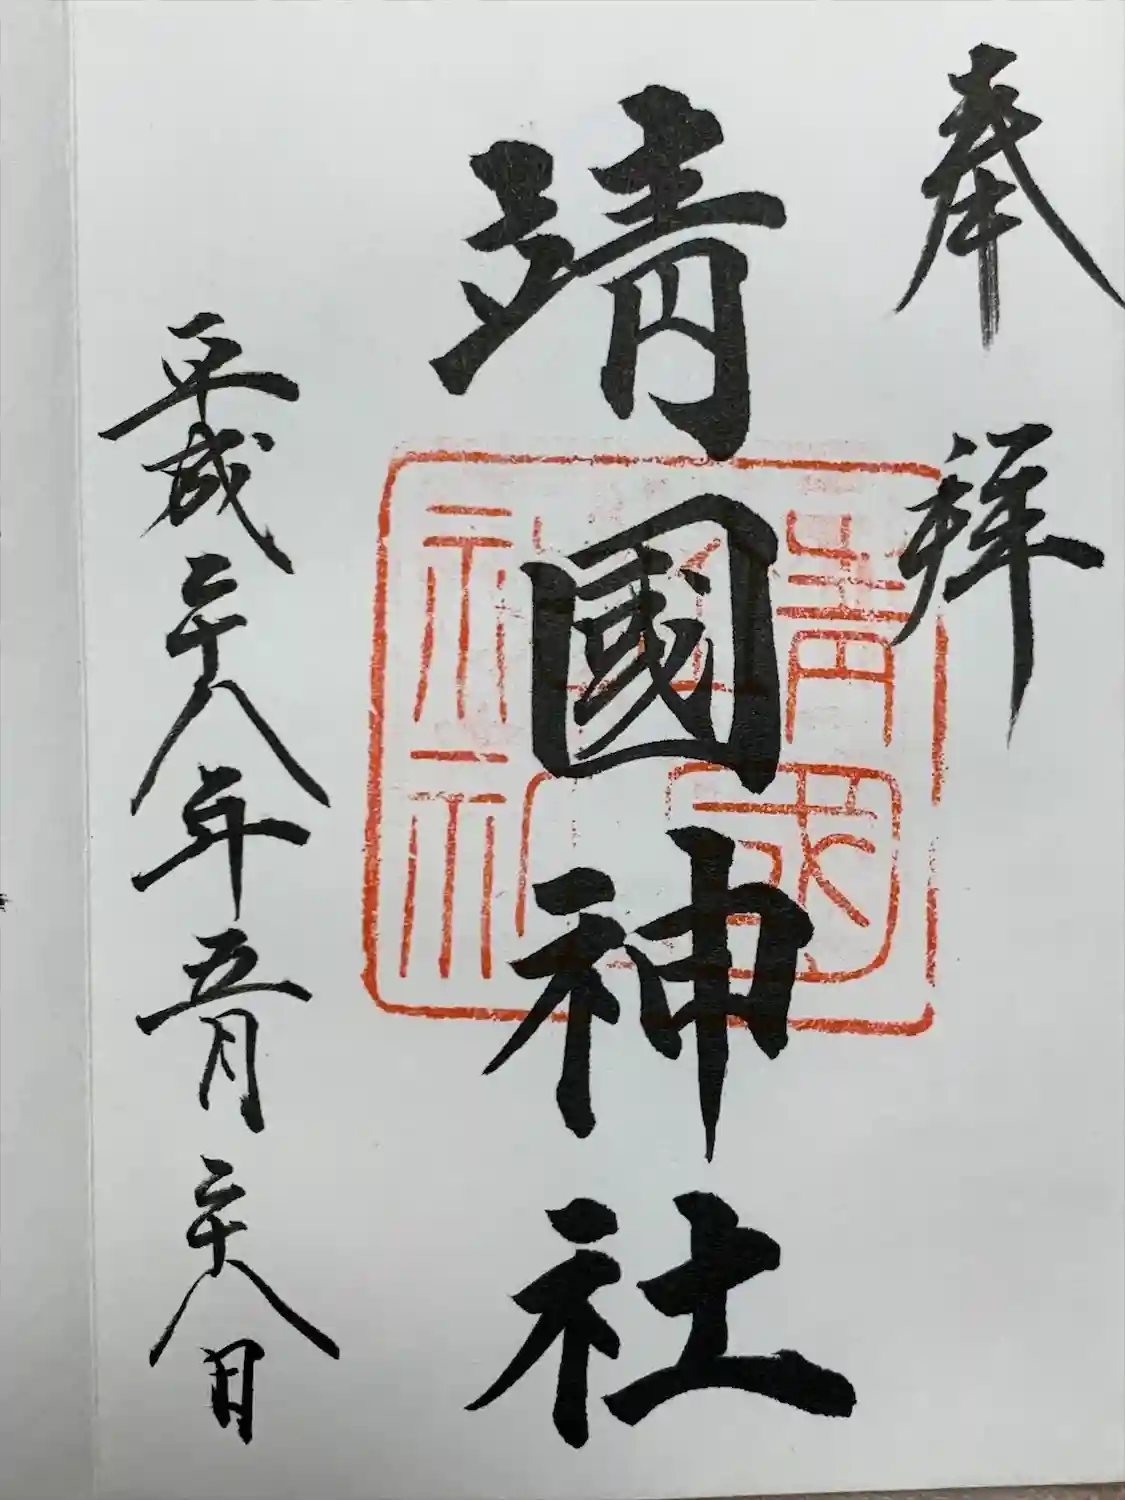 奉拝
靖國神社
平成二十八年五月二十八日